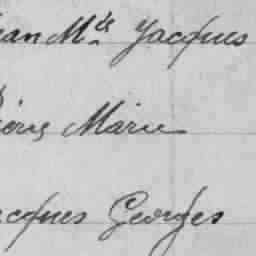 ean Mie Jacques
ierre Marie
acques Georges